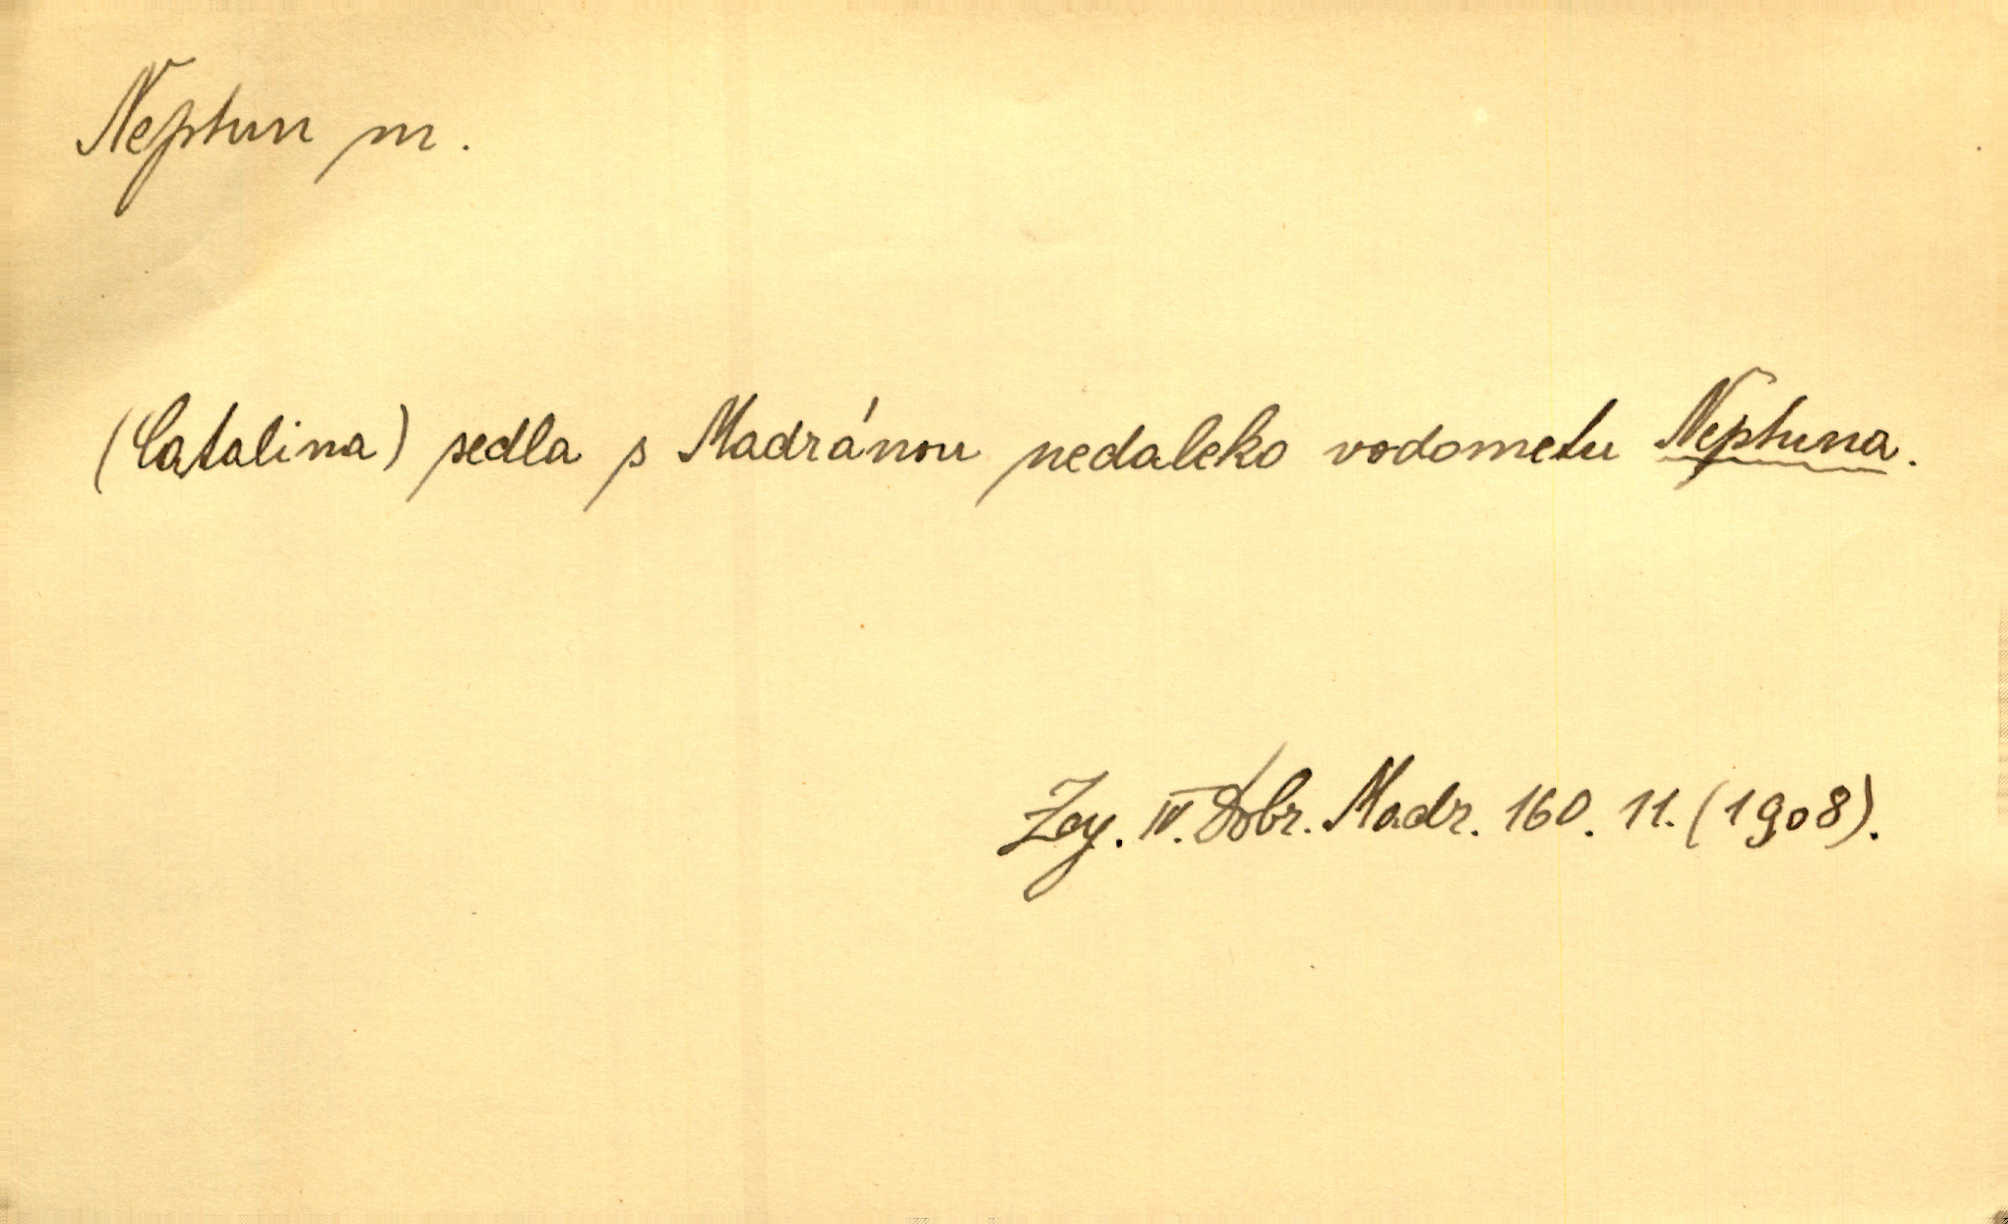 Neptun m.
(Catalina) sedla s Madránou nedaleko vodometu Neptuna.
Zey. IV. Dobr. Madr. 160. 11. (1908).